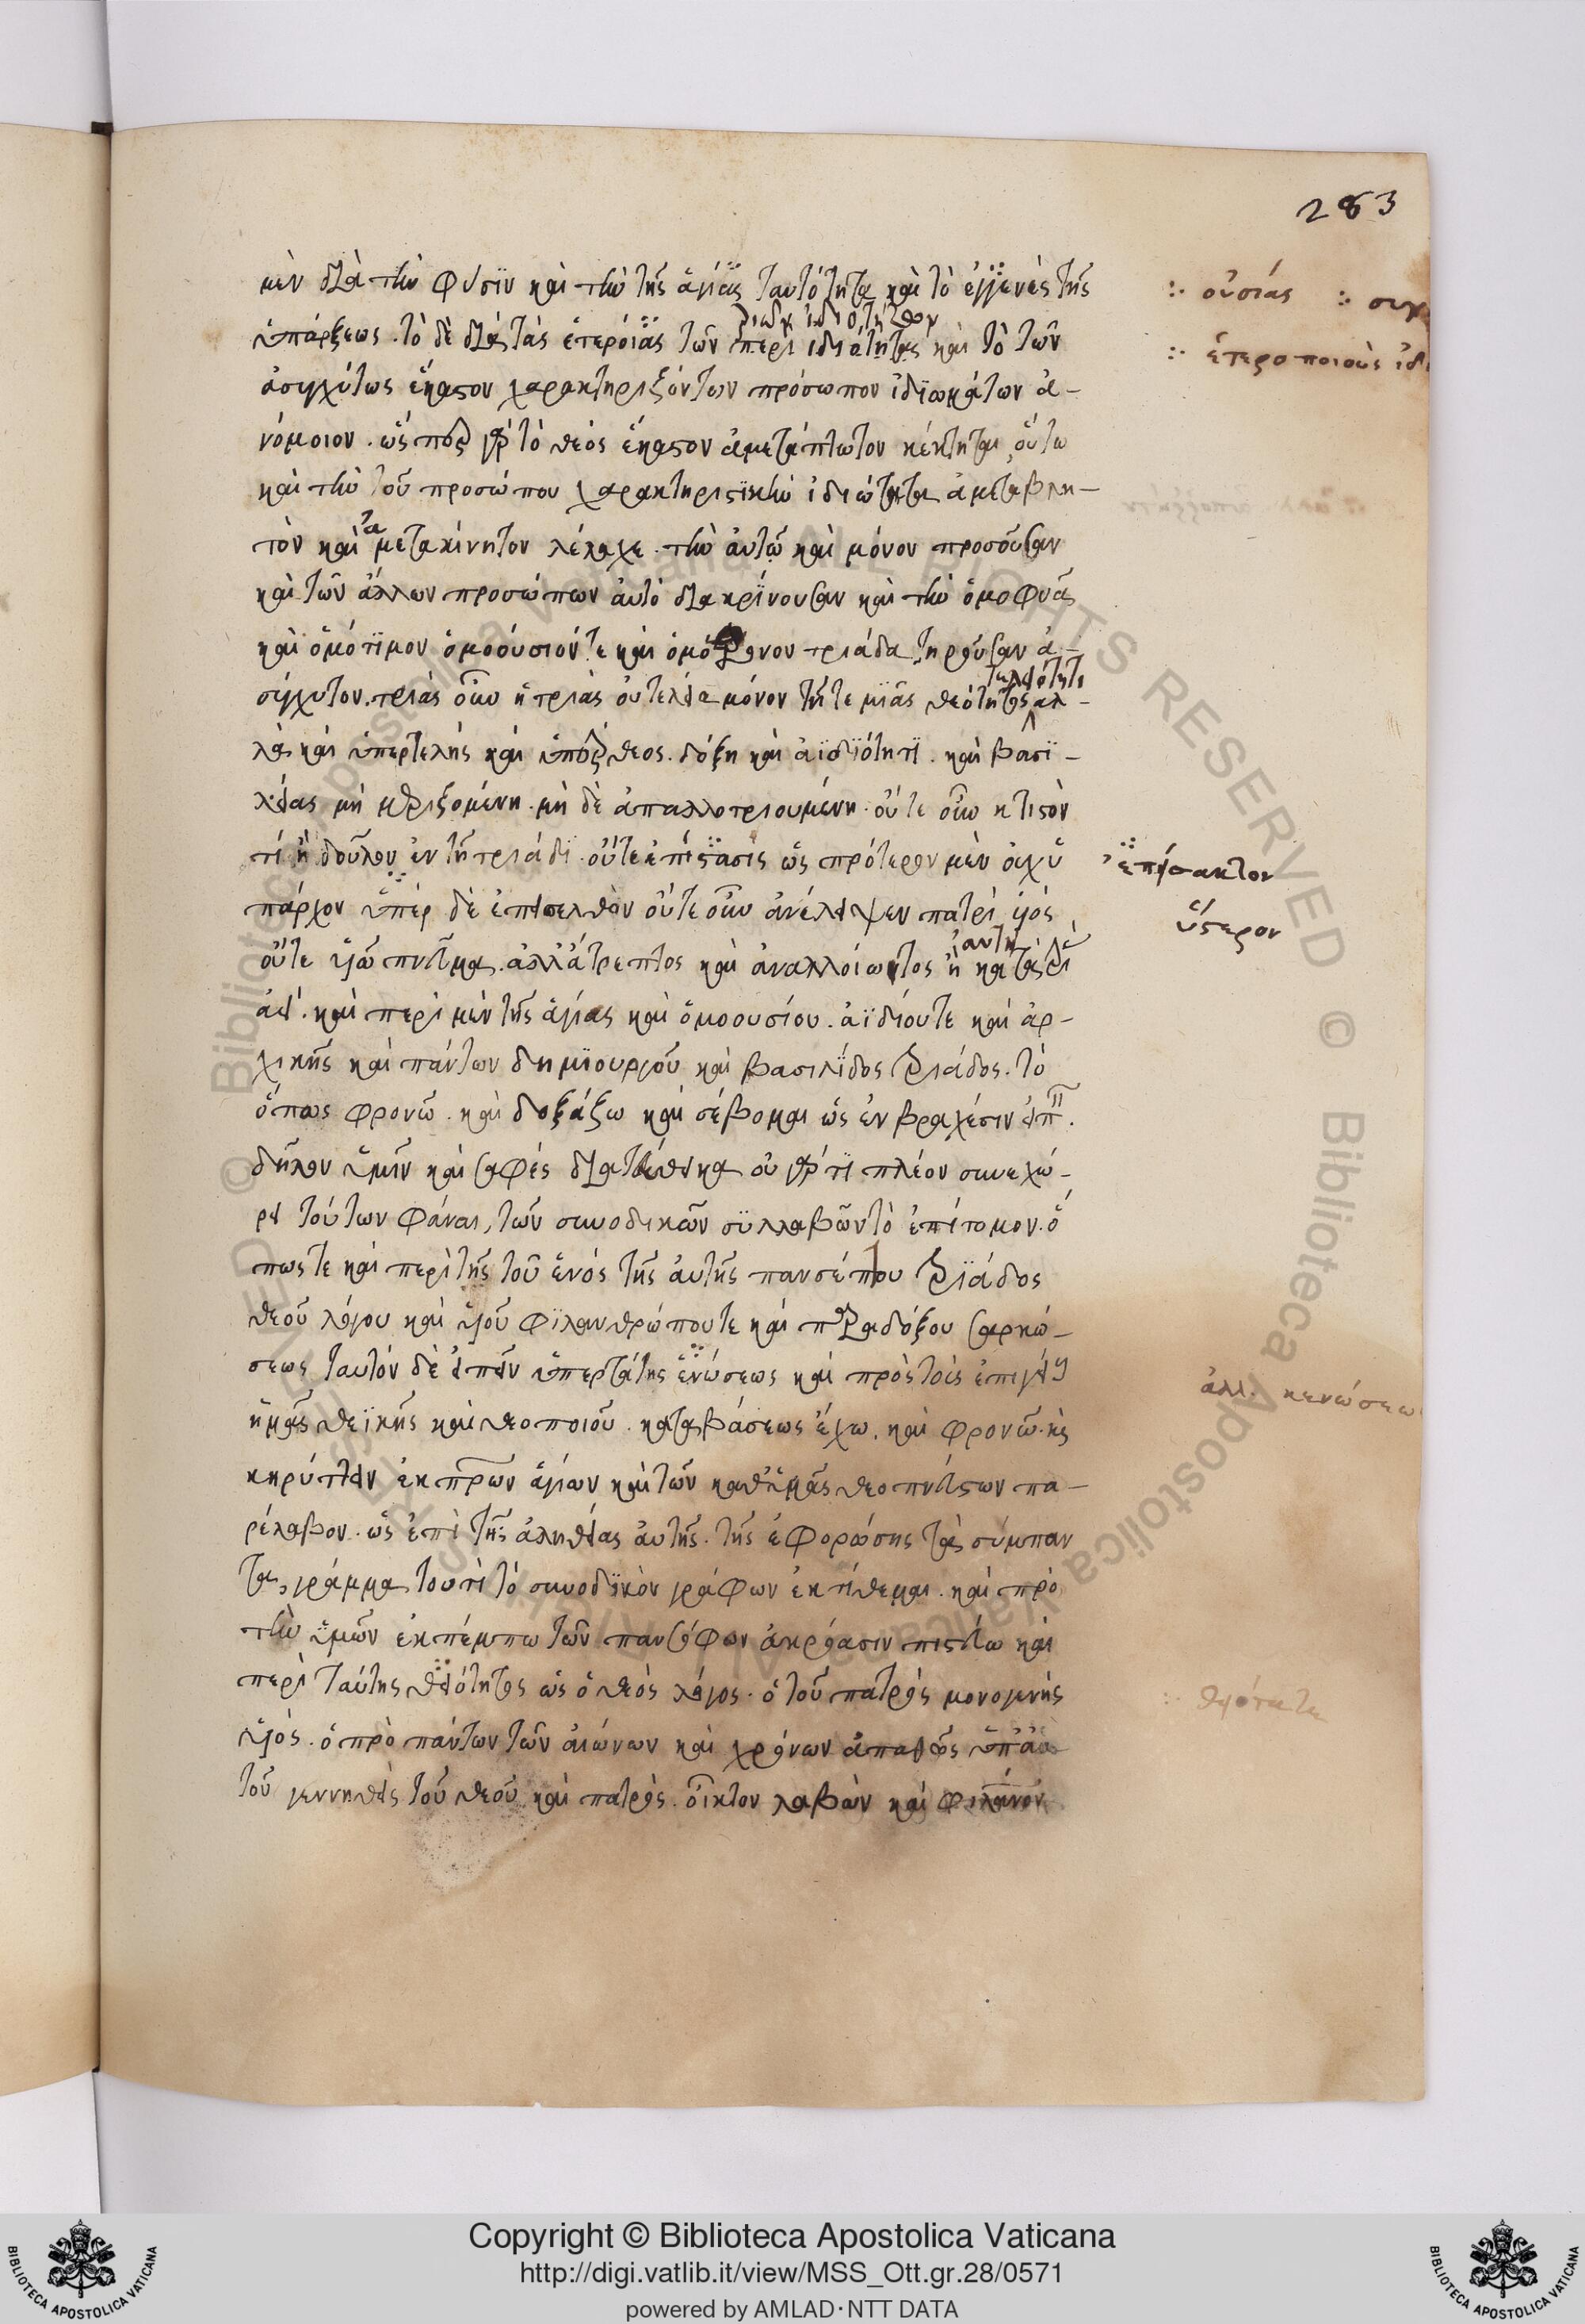 283
μὲν διὰ τὴν φύσϊν καὶ τὴν τῆς ἁγίας ταυτότητα καὶ τὸ ἐγγενὲς τῆς
∴ οὐσίας ∴ συγ
ὑπάρξεως. τὸ δὲ διὰ τὰς ἑτεροίας τῶν περι ιδιότητας καὶ τὸ τῶν
τριῶν ἰδιοτήτων
∴ ἑτεροποιοὺς ἰδι
ἀσυγχύτως ἕκαστον χαρακτηριζόντων πρόσωπον ἰδϊωμάτων ἀ-
νόμοιον. ὥσπερ γὰρ τὸ θεὸς ἕκαστον ἀμετάπτωτον κέκτηται, οὕτω
καὶ τὴν τοῦ προσώπου χαρακτηριστϊκὴν ἰδιώτητα ἀμετάβλη-
τον καὶ ἀμετακίνητον λέλαχε. τὴν αὐτῶ καὶ μόνον προσοῦσαν
καὶ τῶν ἄλλων προσώπων αὐτὸ διακρϊνουσαν καὶ τὴν ὁμοφυᾶ
καὶ ὁμότϊμον ὁμοούσιόν τε καὶ ὁμόθρονον τριάδα τηροῦσαν ἀ-
σύγχυτον. τριὰς οὖν ἡ τριὰς οὐ τελεία μόνον τῆ τε μϊᾶς θεότητος αλ-
τελειότητι
λὰ καὶ ὑπερτελὴς καὶ ὑπέρθεος. δόξη καὶ ἀϊδϊότητϊ. καὶ βασϊ-
λείας μὴ μεριζομένη. μὴ δὲ ἀπαλλοτριουμένη. οὔτε οὖν κτιστὸν
τί ἢ δοῦλον ἐν τῆ τριάδϊ. οὔτε ἐπείσασίς ὡς πρότερον μὲν οὐχ ὑ
ἐπείσακτον
πάρχον ὑπὲρ δὲ ἐπεισελθὸν οὔτε οὖν ἀνέλειψεν πατρὶ υἱὸς
ὕστερον
οὔτε υἱῶ πνεῦμα. ἀλλ' ἄτρεπτος καὶ ἀναλλοίωτος ἡ κατὰ τρι
αὐτὴ
ἀεί. καὶ περὶ μὲν τῆς ἁγίας καὶ ὁμοουσίου. ἀϊδίου τε καὶ ἀρ-
χικῆς καὶ πάντων δημϊουργοῦ καὶ βασιλίδος τριάδος. τὸ
ὅπως φρονῶ. καὶ δοξάζω καὶ σέβομαι ὡς ἐν βραχέσιν εἰπ.
δῆλον ὑμῖν καὶ σαφὲς διατέθεικα οὐ γάρ τϊ πλέον συνεχώ-
ρει τούτων φάναι, τῶν συνοδικῶν συλλαβῶν τὸ ἐπίτομον. ὅ
πως τε καὶ περὶ τῆς τοῦ ἑνὸς τῆς αὐτῆς πανσέπτου τριάδος
θεοῦ λόγου καὶ υἱοῦ φϊλανθρώπου τε καὶ παραδόξου σαρκώ-
σεως ταυτὸν δὲ εἰπεῖν ὑπερτάτης ἑνώσεως καὶ πρὸς τοῖς ἐπιγεί
ἀλλ. κενώσεω
ἡμᾶς θεϊκῆς καὶ θεοποιοῦ. καταβάσεως ἔχω. καὶ φρονῶ. κὶ
κηρύττειν ἐκ πρων ἁγίων καὶ τῶν καθ' ἡμᾶς θεοπνεύστων πα-
ρέλαβον. ὡς ἐπὶ τῆς ἀληθείας αὐτῆς. τῆς ἐφορώσης τὰ σύμπαν
τα, γράμμα τουτὶ τὸ συνοδϊκὸν γράφων ἐκτίθεμαι. καὶ πρὸ
τὴν ὑμῶν ἐκπέμπω τῶν πανσόφων ἀκρόασιν πιστεύω καὶ
περὶ ταύτης θειότητος ὡς ὁ θεὸς λόγος. ὁ τοῦ πατρὸς μονογενὴς
∴ θειότατε
υἱὸς. ὁ πρὸ πάντων τῶν αἰώνων καὶ χρόνων ἀπαθῶς
τοῦ γεννηθεὶς τοῦ θεοῦ καὶ πατρὸς. οἶκτον λαβὼν καὶ